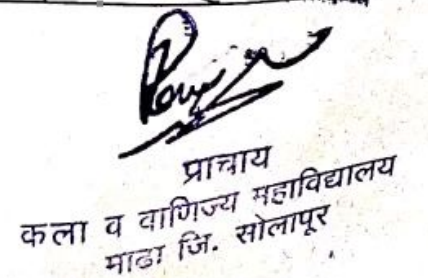 प्राचाय
कला व वाणिज्य महाविद्यालय
माढा जि. सोलापूर